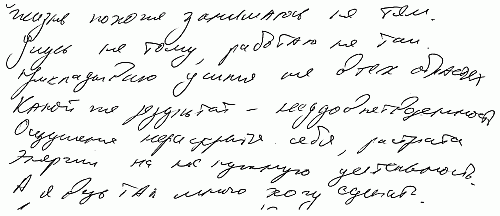 Жизнь похоже занимаюсь не тем.
Учусь не тому, работаю не там.
Прикладываю усилия не в тех областях
Какой же результат – неудовлетворенность
Ощущение нераскрытия себя, растрата
энергии на не нужную деятельность.
А я ведь так много хочу сделать.